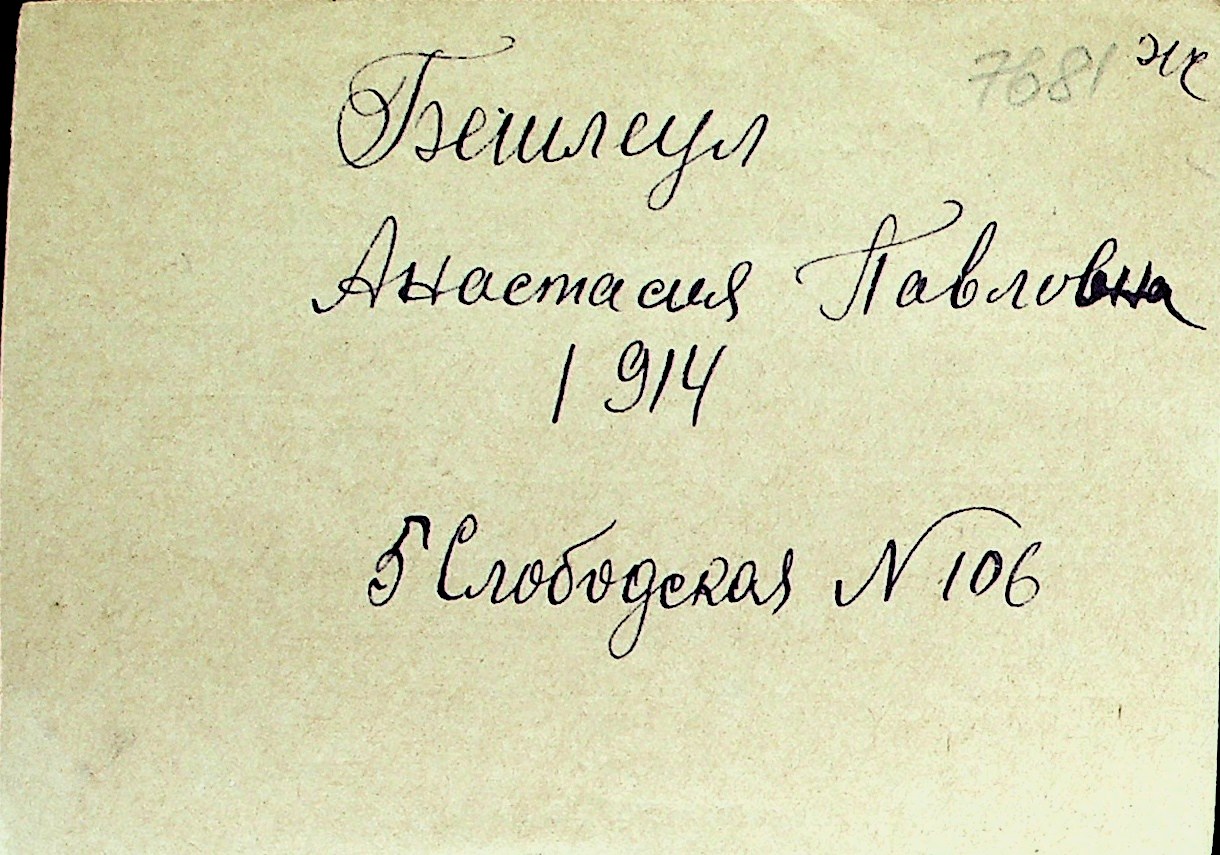 7681 ж
Бешлеул
Анастасия Павловна
1914
5 Слободская N 106